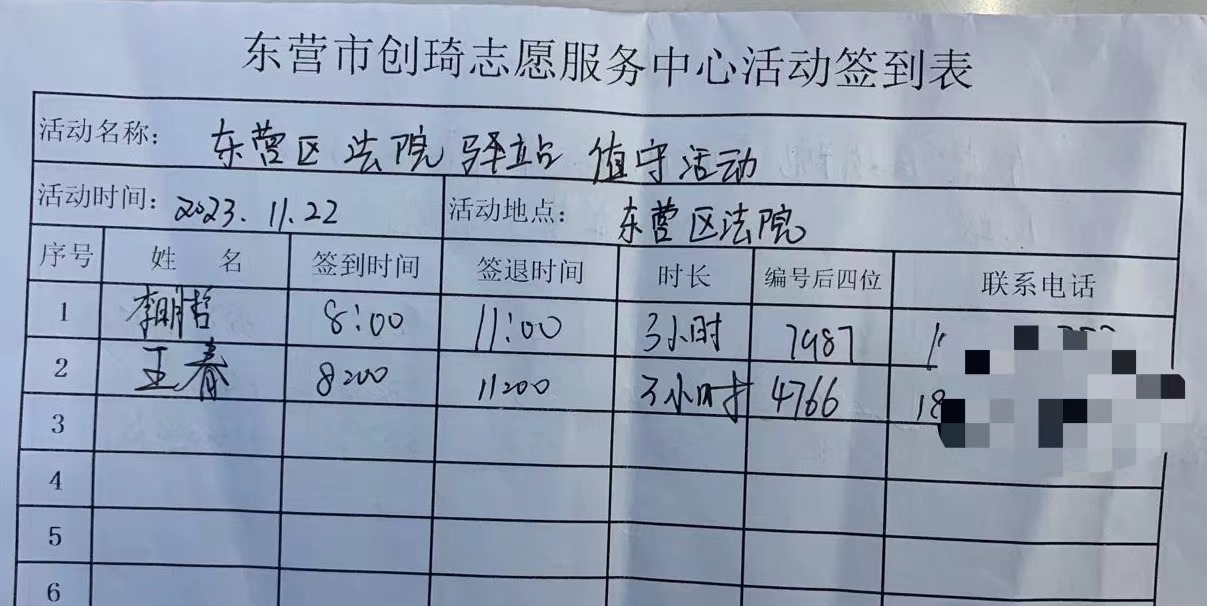 东营市创琦志愿服务中心活动签到表
活动名称： 东营区法院驿站值守活动
活动时间： 2023.11.22 活动地点： 东营区法院
序号 姓 名 签到时间 签退时间 时长 编号后四位 联系电话
1 李明哲 8:00 11:00 3小时 7987 1
2 王春 8:00 11:00 3小时 4766 18
3
4
5
6